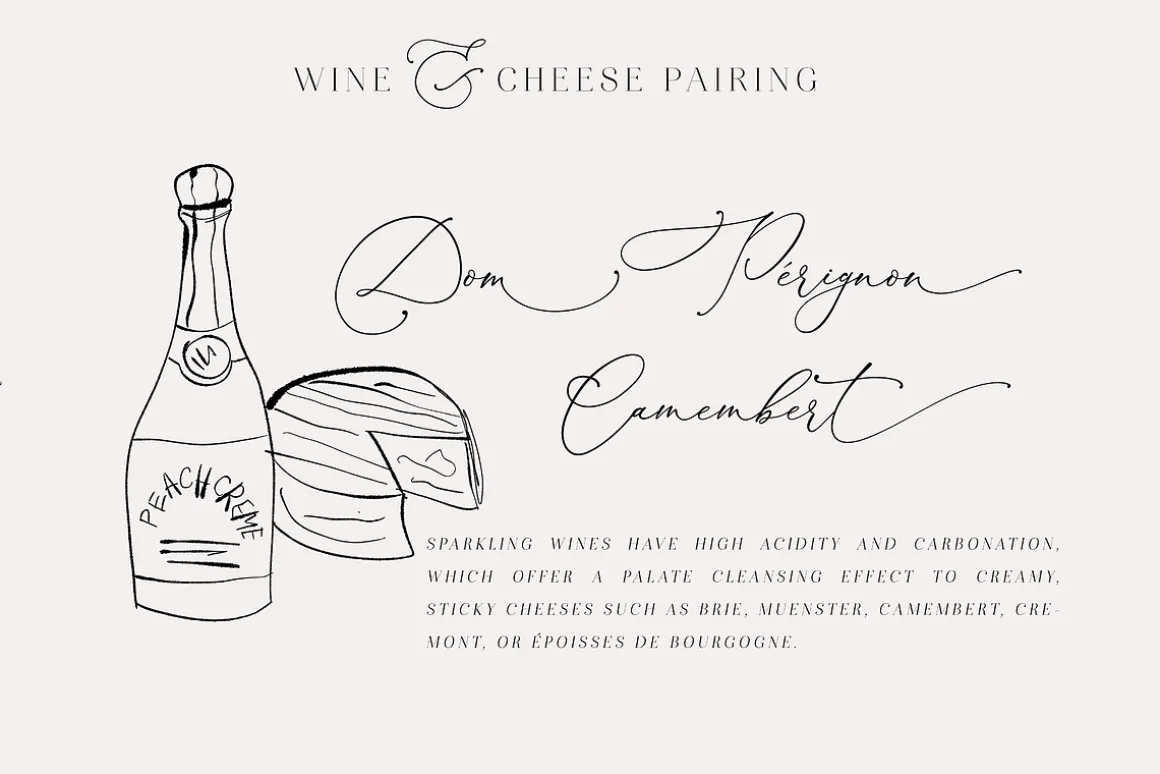 WINE & CHEESE PAIRING
Dom Pérignon
Camembert
PEACH CREME
SPARKLING WINES HAVE HIGH ACIDITY AND CARBONATION,
WHICH OFFER A PALATE CLEANSING EFFECT TO CREAMY,
STICKY CHEESES SUCH AS BRIE, MUENSTER, CAMEMBERT, CRE-
MONT, OR ÉPOISSES DE BOURGOGNE.